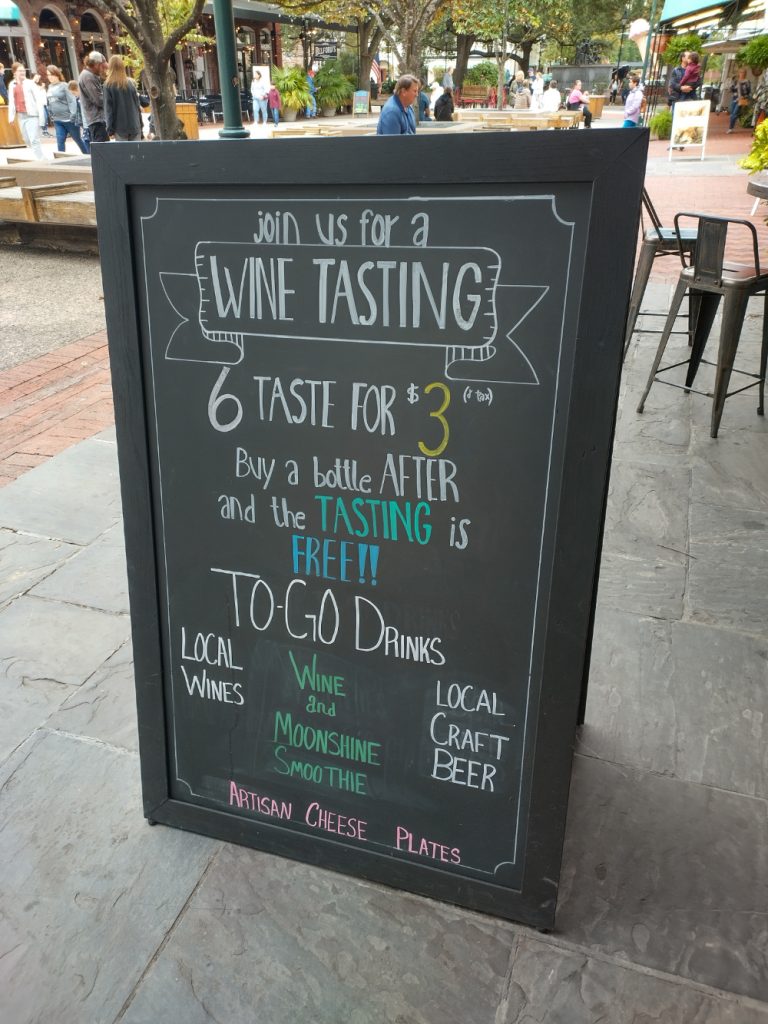 join us for a
WINE TASTING
6 TASTE FOR $3 (+ tax)
Buy a bottle AFTER
and the TASTING is
FREE!!
TO-GO DRINKS
LOCAL
WINES
WINE
and
MOONSHINE
SMOOTHIE
LOCAL
CRAFT
BEER
ARTISAN CHEESE PLATES